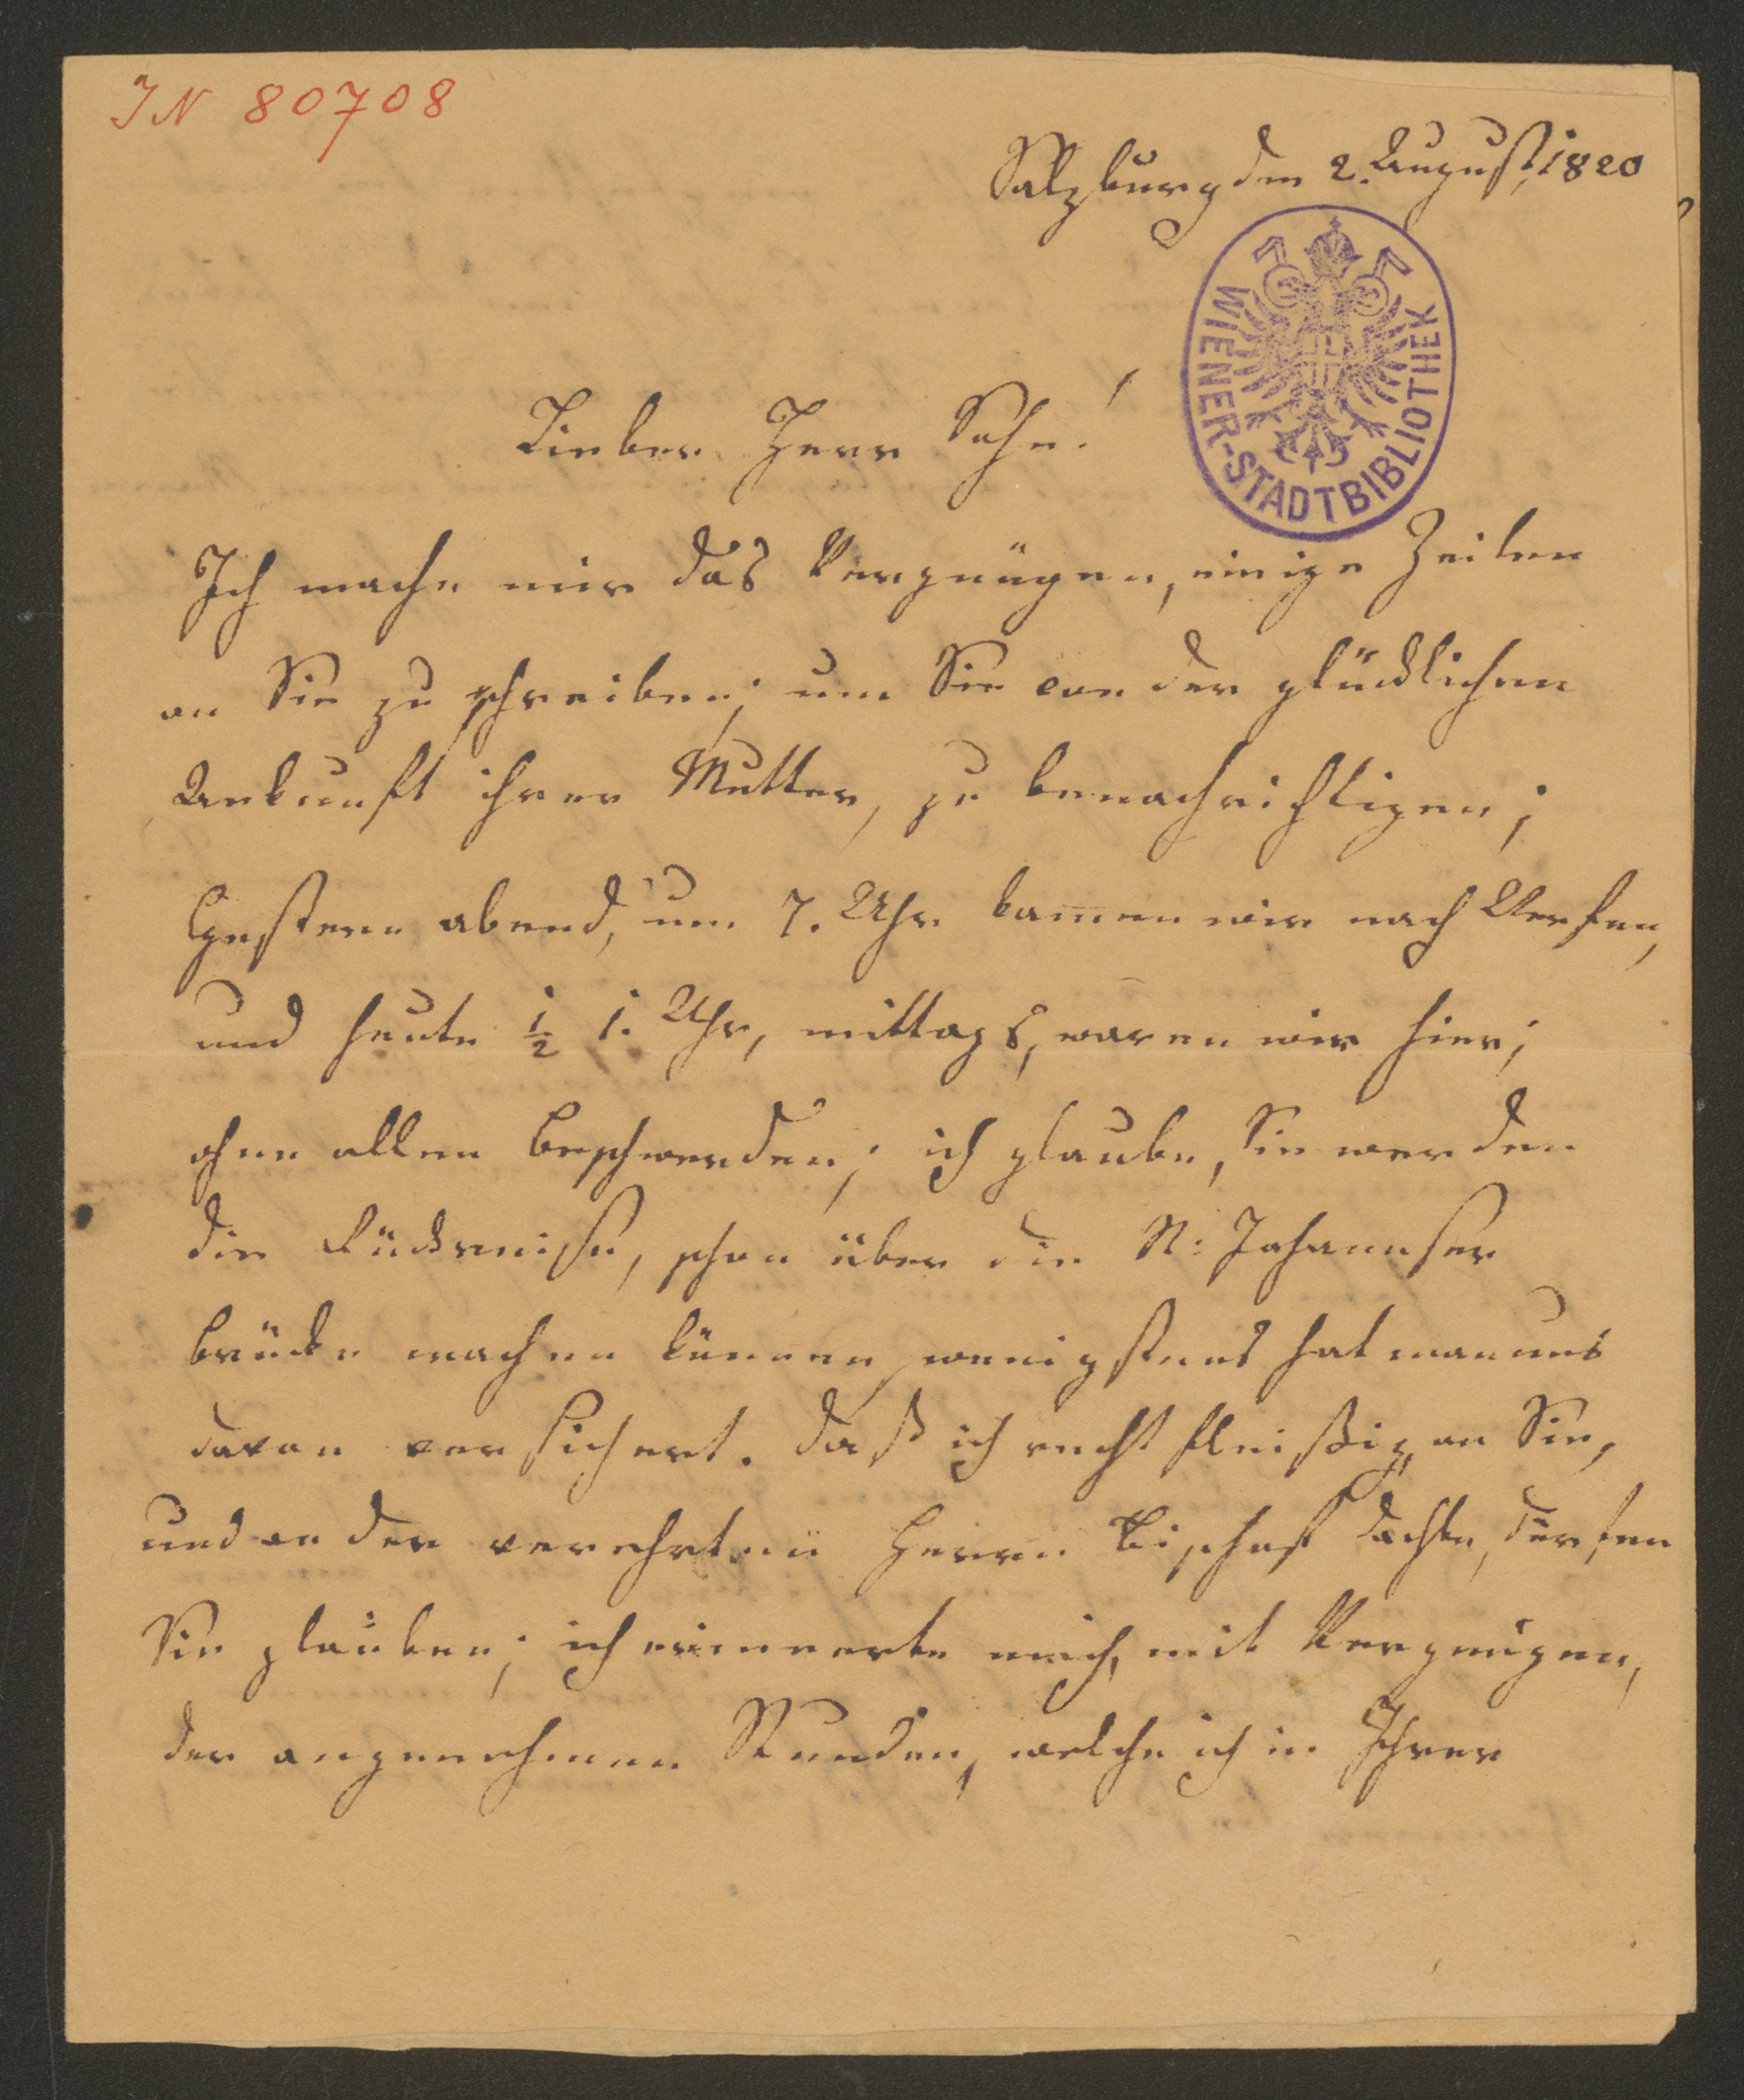 IN 80708
Salzburg den 2. August 1820
WIENER-STADTBIBLIOTHEK
Lieber Herr Sohn!
Ich mache mir das Vergnügen, einige Zeilen
an Sie zu schreiben; um Sie von der glücklichen
Ankunft ihrer Mutter, zu benachrichtigen;
Gestern abend, um 7. Uhr kamen wir nach Werfen,
und heute ½ 1. Uhr, mittags, waren wir hier;
ohne allen Beschwerden; ich glaube, Sie werden
die Rückreise, schon über die St: Johannser
brücke machen können, wenigstens hat man uns
davon versichert. Daß ich recht fleißig an Sie,
und an den verehrten Herrn Bischof dachte, dürfen
Sie glauben; ich erinnerte mich, mit Vergnügen,
der angenehmen Stunden, welche ich in Ihrer